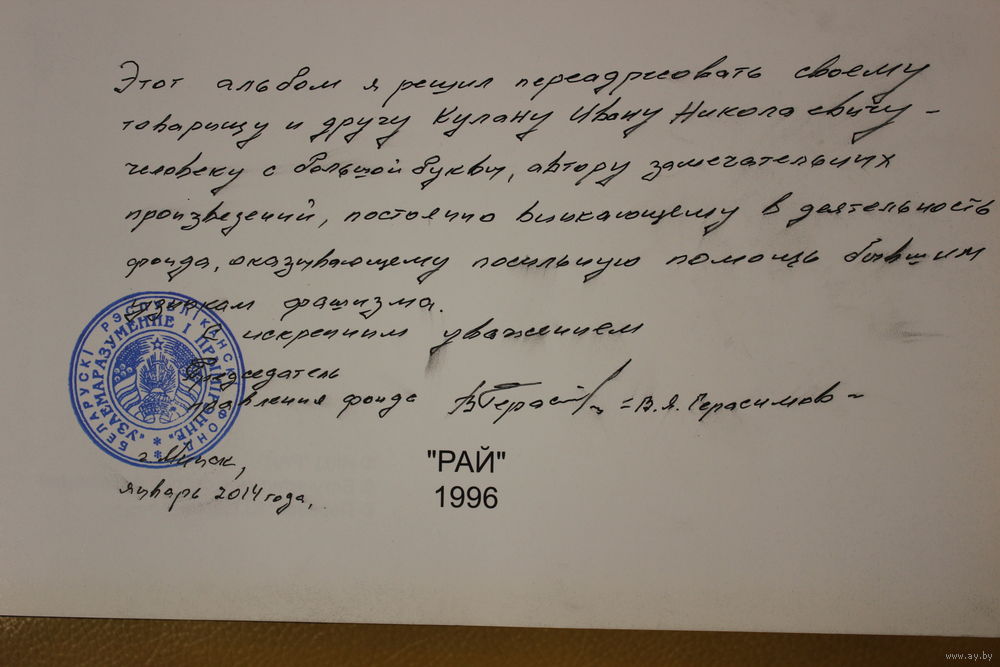 Этот альбом я решил переадресовать своему
товарищу и другу Кулану Ивану Николаевичу -
человеку с большой буквы, автору замечательных
произведений, постоянно вникающему в деятельность
фонда, оказывающему посильную помощь бывшим
узникам фашизма.
С искренним уважением
Председатель
правления фонда ВГерас =В.Я. Герасимов=
БЕЛАРУСКІ РЭСПУБЛІКАНСКІ ФОНД
"УЗАЕМАРАЗУМЕННЕ І ПРЫМІРЭННЕ"
г. Минск,
январь 2014 года.
"РАЙ"
1996
www.ay.by